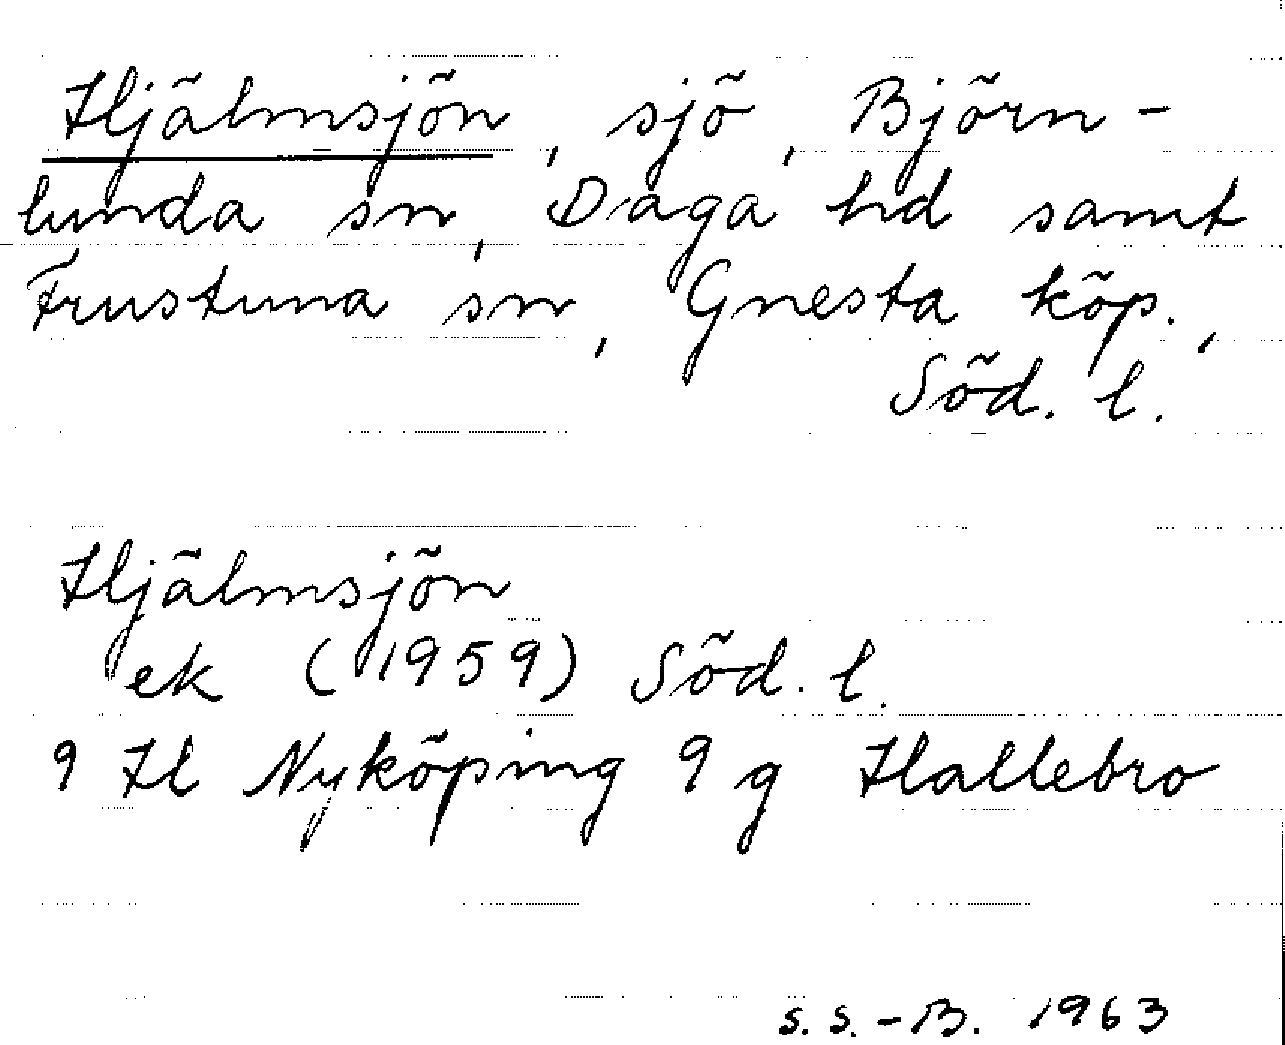 Hjälmsjön, sjö, Björn-
lunda sn, Daga hd samt
Frustuna sn, Gnesta köp.,
Söd. l.
Hjälmsjön
ek (1959) Söd. l.
9 H Nyköping 9 g Hallebro
S. S.-B. 1963